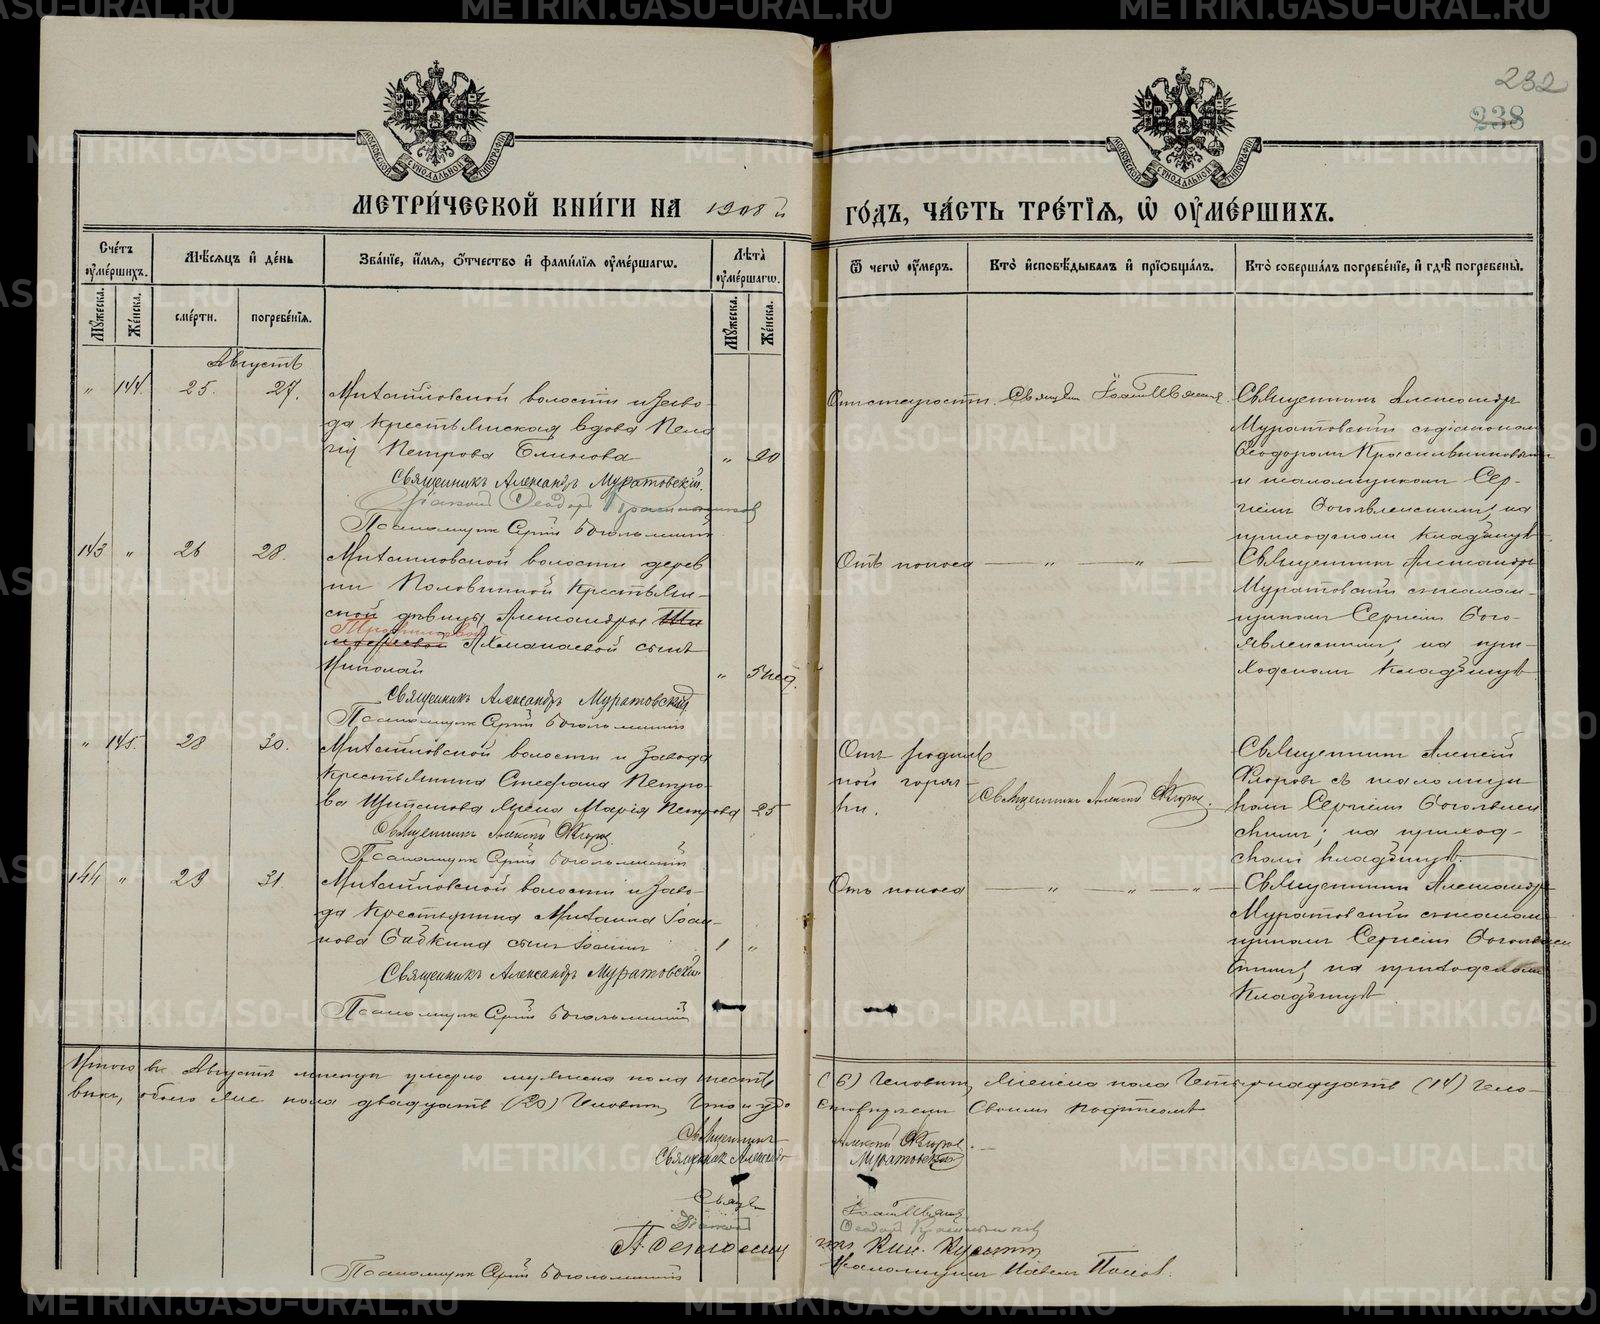 232
238
МОСКОВСКОЙ СѴНОДАЛЬНОЙ ТИПОГРАФІИ
МОСКОВСКОЙ СѴНОДАЛЬНОЙ ТИПОГРАФІИ
МЕТРИ́ЧЕСКОЙ КНИ́ГИ НА 1908й
ГО́ДЪ, ЧА́СТЬ ТРЕ́ТІѦ, Ѡ҆ ОУ҆МЕ́РШИХЪ.
Сче́тъ оу҆ме́ршихъ.
Мѣ́сѧцъ и҆ де́нь
Зва́нїе, и҆́мѧ, ѻ҆́тчество и҆ фами́лїѧ оу҆ме́ршагѡ.
Лѣ̀та оу҆ме́ршагѡ.
Ѿ чегѡ̀ оу҆́меръ.
Кто̀ и҆сповѣ́дывалъ и҆ прїѻбща́лъ.
Кто̀ соверша́лъ погребе́нїе, и҆ гдѣ̀ погребены̀.
Мꙋ́жеска.
Же́нска.
сме́рти.
погребе́нїѧ.
Мꙋ́жеска.
Же́нска.
Августъ
" 144. 25. 27.
Михайловской волости и заво-
да крестьянская вдова Пела
гія Петрова Блинова " 90
Священникъ Александръ Муратовскій.
Діаконъ Ѳеодоръ Красильниковъ
Псаломщик Сергій Богоявленскій
От старости
Священ. Іоаннъ
Священникъ Александръ
Муратовскій съ діакономъ
Ѳеодоромъ Красильниковымъ
и псаломщикомъ Сер-
гіемъ Богоявленскимъ, на
приходскомъ кладбищѣ.
143 " 26 28.
Михайловской волости дерев
ни Половинной крестьян-
ской дѣвицы Александры
Трофимовой
Ахманаевой сынъ
Николай " 5 нед.
Священникъ Александръ Муратовскій
Псаломщик Сергій Богоявленскій
Отъ поноса — " — " —
Священникъ Александръ
Муратовскій съ псалом-
щикомъ Сергіемъ Бого-
явленскимъ, на при-
ходскомъ кладбищѣ
" 145. 28 30.
Михайловской волости и завода
крестьянина Стефана Петро-
ва Щипанова жена Марія Петрова 25
Священникъ Алексій Флоровъ
Псаломщик Сергій Богоявленскій
Отъ родиль
ной горяч-
ки.
Священникъ Алексій Флоровъ.
Священникъ Алексій
Флоровъ съ псаломщи
комъ Сергіемъ Богоявлен
скимъ, на приход-
скомъ кладбищѣ.
144 " 29 31.
Михайловской волости и заво-
да крестьянина Михаила Іоан-
нова Бабкина сынъ Іоаннъ 1 "
Священникъ Александръ Муратовскій
Псаломщик Сергій Богоявленскій
Отъ поноса — " — " — " —
Священникъ Александръ
Муратовскій съ псалом-
щикомъ Сергіемъ Богоявлен
скимъ, на приходскомъ
кладбищѣ
Итого въ Августѣ мѣсяцѣ умерло мужеска пола шесть (6) человѣкъ, женска пола четырнадцать (14) чело-
вѣкъ, обоего же пола двадцать (20) человѣкъ, что и удо стовѣряемъ своимъ подписомъ
Священникъ Алексій Флоровъ.
Священникъ Александръ Муратовскій
Священ. Іоаннъ
Діаконъ Ѳеодоръ Красильниковъ
Псаломщик Сергій Богоявленскій
Псаломщикъ Павелъ Поповъ.
METRIKI.GASO-URAL.RU